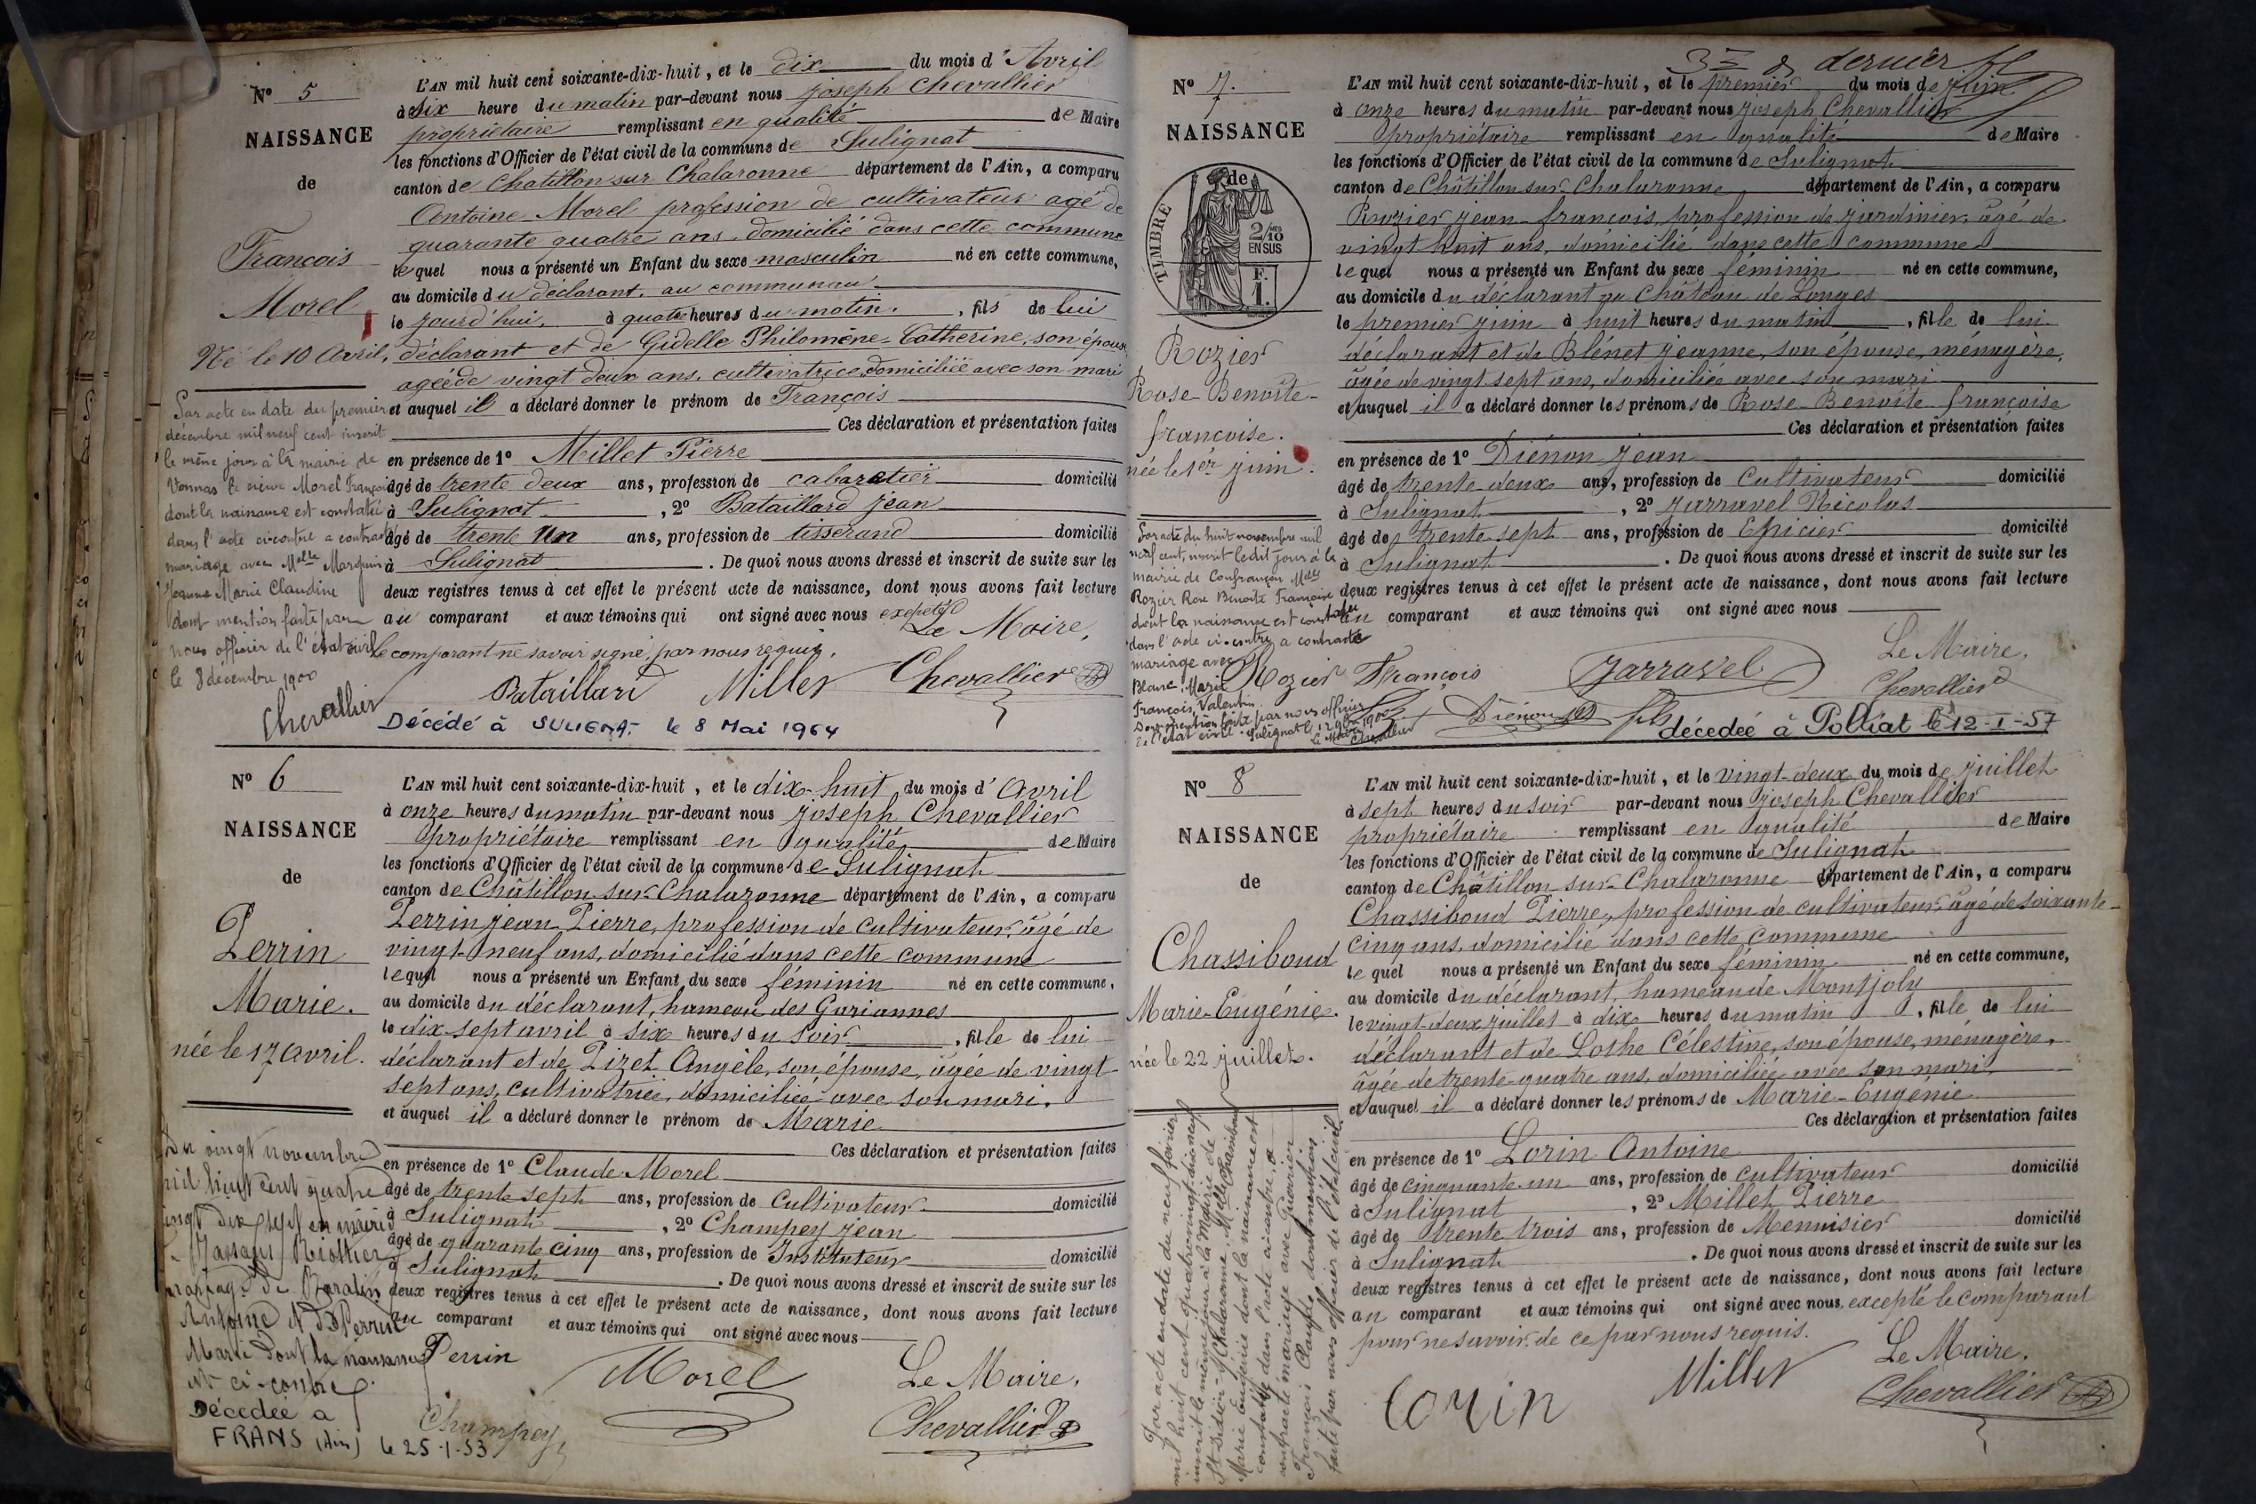 Nº 5
NAISSANCE
de
François
Morel
Né le 10 Avril.
Par acte en date du premier
décembre mil neuf cent inscrit
le même jour à la mairie de
Vonnas le sieur Morel François
dont la naissance est constatée
dans l'acte ci-contre a contracté
mariage avec Melle Marguin
Jeanne Marie Claudine
dont mention faite par
nous officier de l'état civil
le 8 décembre 1900
Chevallier
L'AN mil huit cent soixante-dix-huit, et le dix du mois d'Avril
à six heure du matin par-devant nous Joseph Chevallier
propriétaire remplissant en qualité de Maire
les fonctions d'Officier de l'état civil de la commune de Sulignat
canton de Chatillon sur Chalaronne département de l'Ain, a comparu
Antoine Morel profession de cultivateur agé de
quarante quatre ans, domicilié dans cette commune
lequel nous a présenté un Enfant du sexe masculin né en cette commune,
au domicile du déclarant, au communau
le jourd'hui, à quatre heures du matin, fils de lui
déclarant et de Gidelle Philomène-Catherine, son épouse
agée de vingt deux ans, cultivatrice domiciliée avec son mari
et auquel il a déclaré donner le prénom de François
Ces déclaration et présentation faites
en présence de 1º Millet Pierre
âgé de trente deux ans, profession de cabaretier domicilié
à Sulignat, 2º Bataillard Jean
âgé de trente un ans, profession de tisserand domicilié
à Sulignat. De quoi nous avons dressé et inscrit de suite sur les
deux registres tenus à cet effet le présent acte de naissance, dont nous avons fait lecture
au comparant et aux témoins qui ont signé avec nous excepté
le comparant ne savoir signé, par nous requis.
Le Maire,
Bataillard Millet Chevallier
Décédé à SULIGNAT le 8 Mai 1964
Nº 6
NAISSANCE
de
Perrin
Marie.
née le 17 avril.
Du vingt novembre
mil huit cent quatre
vingt dix sept en mairie
Jassans Riottier
mariage de
Antoine et de Perrin
Marie dont la naissance
est ci-contre.
Décédée à
FRANS (Ain) le 25-1-53
L'AN mil huit cent soixante-dix-huit, et le dix-huit du mois d'Avril
à onze heures du matin par-devant nous Joseph Chevallier
propriétaire remplissant en qualité de Maire
les fonctions d'Officier de l'état civil de la commune de Sulignat
canton de Châtillon-sur-Chalaronne département de l'Ain, a comparu
Perrin Jean Pierre, profession de cultivateur, âgé de
vingt-neuf ans, domicilié dans cette commune
lequel nous a présenté un Enfant du sexe féminin né en cette commune,
au domicile du déclarant, hameau des Gariannes
le dix-sept avril à six heures du soir, fille de lui
déclarant et de Pizet Angèle, son épouse, âgée de vingt-
sept ans, cultivatrice, domiciliée avec son mari.
et auquel il a déclaré donner le prénom de Marie
Ces déclaration et présentation faites
en présence de 1º Claude Morel
âgé de trente sept ans, profession de Cultivateur domicilié
à Sulignat, 2º Champey Jean
âgé de quarante cinq ans, profession de Instituteur domicilié
à Sulignat. De quoi nous avons dressé et inscrit de suite sur les
deux registres tenus à cet effet le présent acte de naissance, dont nous avons fait lecture
au comparant et aux témoins qui ont signé avec nous
Perrin Morel Le Maire,
Champey Chevallier
3e & dernier
Nº 7.
NAISSANCE
de
TIMBRE
2/10
EN SUS
F.
1.
Rozier
Rose-Benoîte-
françoise.
née le 1er juin.
Par acte du huit novembre mil
neuf cent, inscrit ledit jour à la
mairie de Confrançon Melle
Rozier Rose Benoîte Françoise
dont la naissance est constatée
dans l'acte ci-contre a contracté
mariage avec
Blanc, Marie
François, Valentin
Dont mention faite par nous officier
de l'état civil. Sulignat le 1900
le Maire
Chevallier
L'AN mil huit cent soixante-dix-huit, et le premier du mois de Juin
à onze heures du matin par-devant nous Joseph Chevallier
propriétaire remplissant en qualité de Maire
les fonctions d'Officier de l'état civil de la commune de Sulignat
canton de Châtillon-sur-Chalaronne département de l'Ain, a comparu
Rozier jean-françois, profession de jardinier, âgé de
vingt huit ans, domicilié dans cette commune
lequel nous a présenté un Enfant du sexe féminin né en cette commune,
au domicile du déclarant au Château de Longes
le premier juin à huit heures du matin, fille de lui
déclarant et de Blénet Jeanne, son épouse, ménagère,
âgée de vingt sept ans, domiciliée avec son mari
et auquel il a déclaré donner les prénoms de Rose-Benoîte-françoise
Ces déclaration et présentation faites
en présence de 1º Diénon Jean
âgé de trente-deux ans, profession de Cultivateur domicilié
à Sulignat, 2º Jarravel Nicolas
âgé de trente sept ans, profession de Epicier domicilié
à Sulignat. De quoi nous avons dressé et inscrit de suite sur les
deux registres tenus à cet effet le présent acte de naissance, dont nous avons fait lecture
au comparant et aux témoins qui ont signé avec nous
Rozier François Jarravel Le Maire,
Diénon fils Chevallier
décédée à Polliat le 12-I-57
Nº 8
NAISSANCE
de
Chassiboud
Marie-Eugénie.
née le 22 juillet.
Par acte en date du neuf février
mil huit cent quatre vingt dix neuf
inscrit le même jour à la Mairie de
St-Didier-s/Chalaronne, Melle Chassiboud
Marie Eugénie dont la naissance est
constatée dans l'acte ci-contre, a
contracté mariage avec Guerrier
François Claude, dont mention
faite par nous officier de l'état civil.
L'AN mil huit cent soixante-dix-huit, et le vingt-deux du mois de Juillet
à sept heures du soir par-devant nous Joseph Chevallier
propriétaire remplissant en qualité de Maire
les fonctions d'Officier de l'état civil de la commune de Sulignat
canton de Châtillon-sur-Chalaronne département de l'Ain, a comparu
Chassiboud Pierre, profession de cultivateur, âgé de soixante-
cinq ans, domicilié dans cette commune
lequel nous a présenté un Enfant du sexe féminin né en cette commune,
au domicile du déclarant, hameau de Montjoly
le vingt-deux juillet à dix heures du matin, fille de lui
déclarant et de Lothe Célestine, son épouse, ménagère,
âgée de trente-quatre ans, domiciliée avec son mari
et auquel il a déclaré donner les prénoms de Marie-Eugénie
Ces déclaration et présentation faites
en présence de 1º Lorin Antoine
âgé de cinquante-un ans, profession de cultivateur domicilié
à Sulignat, 2º Millet Pierre
âgé de trente trois ans, profession de Menuisier domicilié
à Sulignat. De quoi nous avons dressé et inscrit de suite sur les
deux registres tenus à cet effet le présent acte de naissance, dont nous avons fait lecture
au comparant et aux témoins qui ont signé avec nous, excepté le comparant
pour ne savoir, de ce par nous requis.
Le Maire,
Lorin Millet Chevallier